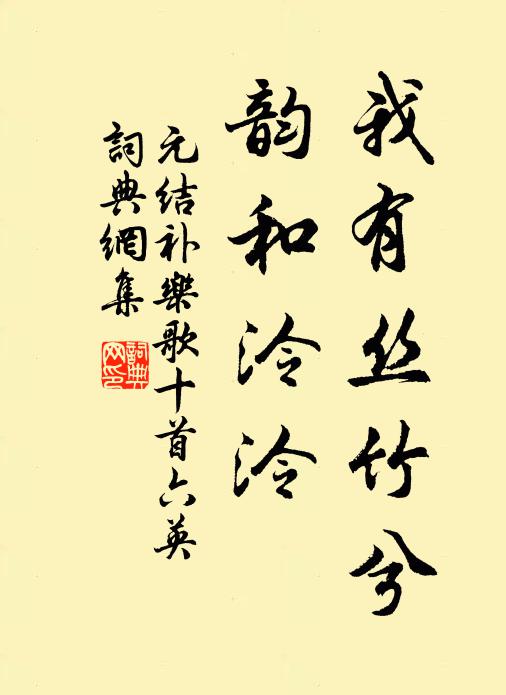 我有丝竹兮
韵和泠泠
元结补樂歌十首六英
詞典網集
詞典
网印